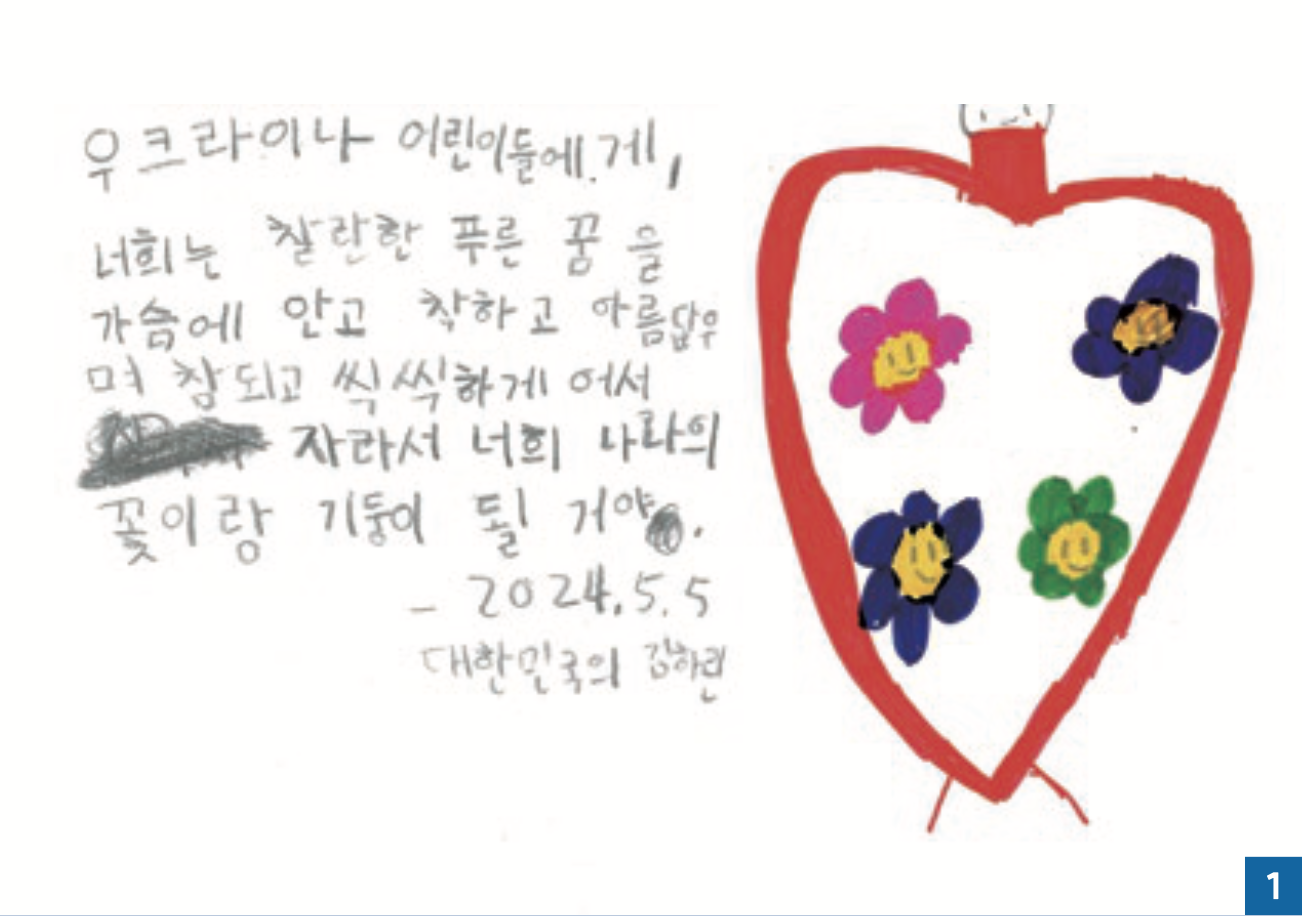 우크라이나 어린이들에게,
너희는 찬란한 푸른 꿈을
가슴에 안고 착하고 아름답우
며 참되고 씩씩하게 어서
자라서 너희 나라의
꽃이랑 기둥이 될 거야.
- 2024.5.5
대한민국의 김하린
1